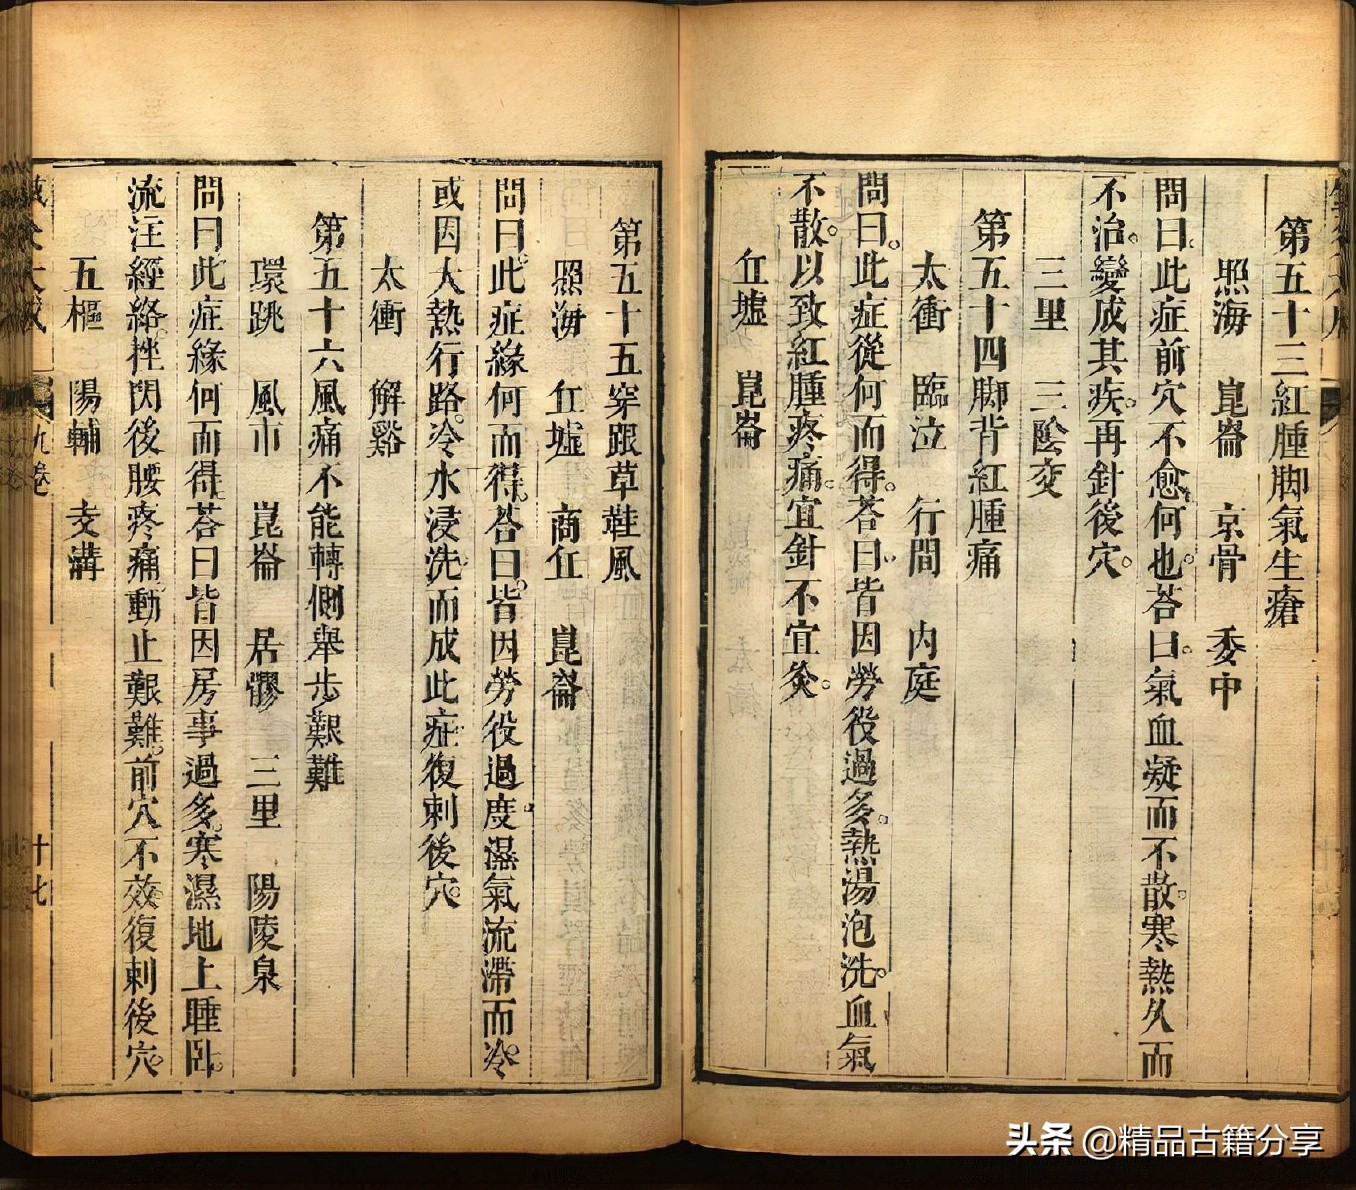 第五十三紅腫脚氣生瘡
照海　崑崙　京骨　委中
問曰此症前穴不愈何也荅曰氣血凝而不散寒熱久而
不治變成其疾再針後穴
三里　三陰交
第五十四脚背紅腫痛
太衝　臨泣　行間　内庭
問曰此症從何而得荅曰皆因勞役過多熱湯泡洗血氣
不散以致紅腫疼痛宜針不宜灸
丘墟　崑崙
第五十五穿跟草鞋風
照海　丘墟　商丘　崑崙
問曰此症緣何而得荅曰皆因勞役過度濕氣流滯而冷
或因大熱行路冷水浸洗而成此症復刺後穴
太衝　解谿
第五十六風痛不能轉側舉步艱難
環跳　風市　崑崙　居髎　三里　陽陵泉
問曰此症緣何而得荅曰皆因房事過多寒濕地上睡卧
流注經絡挫閃後腰疼痛動止艱難前穴不效復刺後穴
五樞　陽輔　支溝
九卷　十七
头条 @精品古籍分享